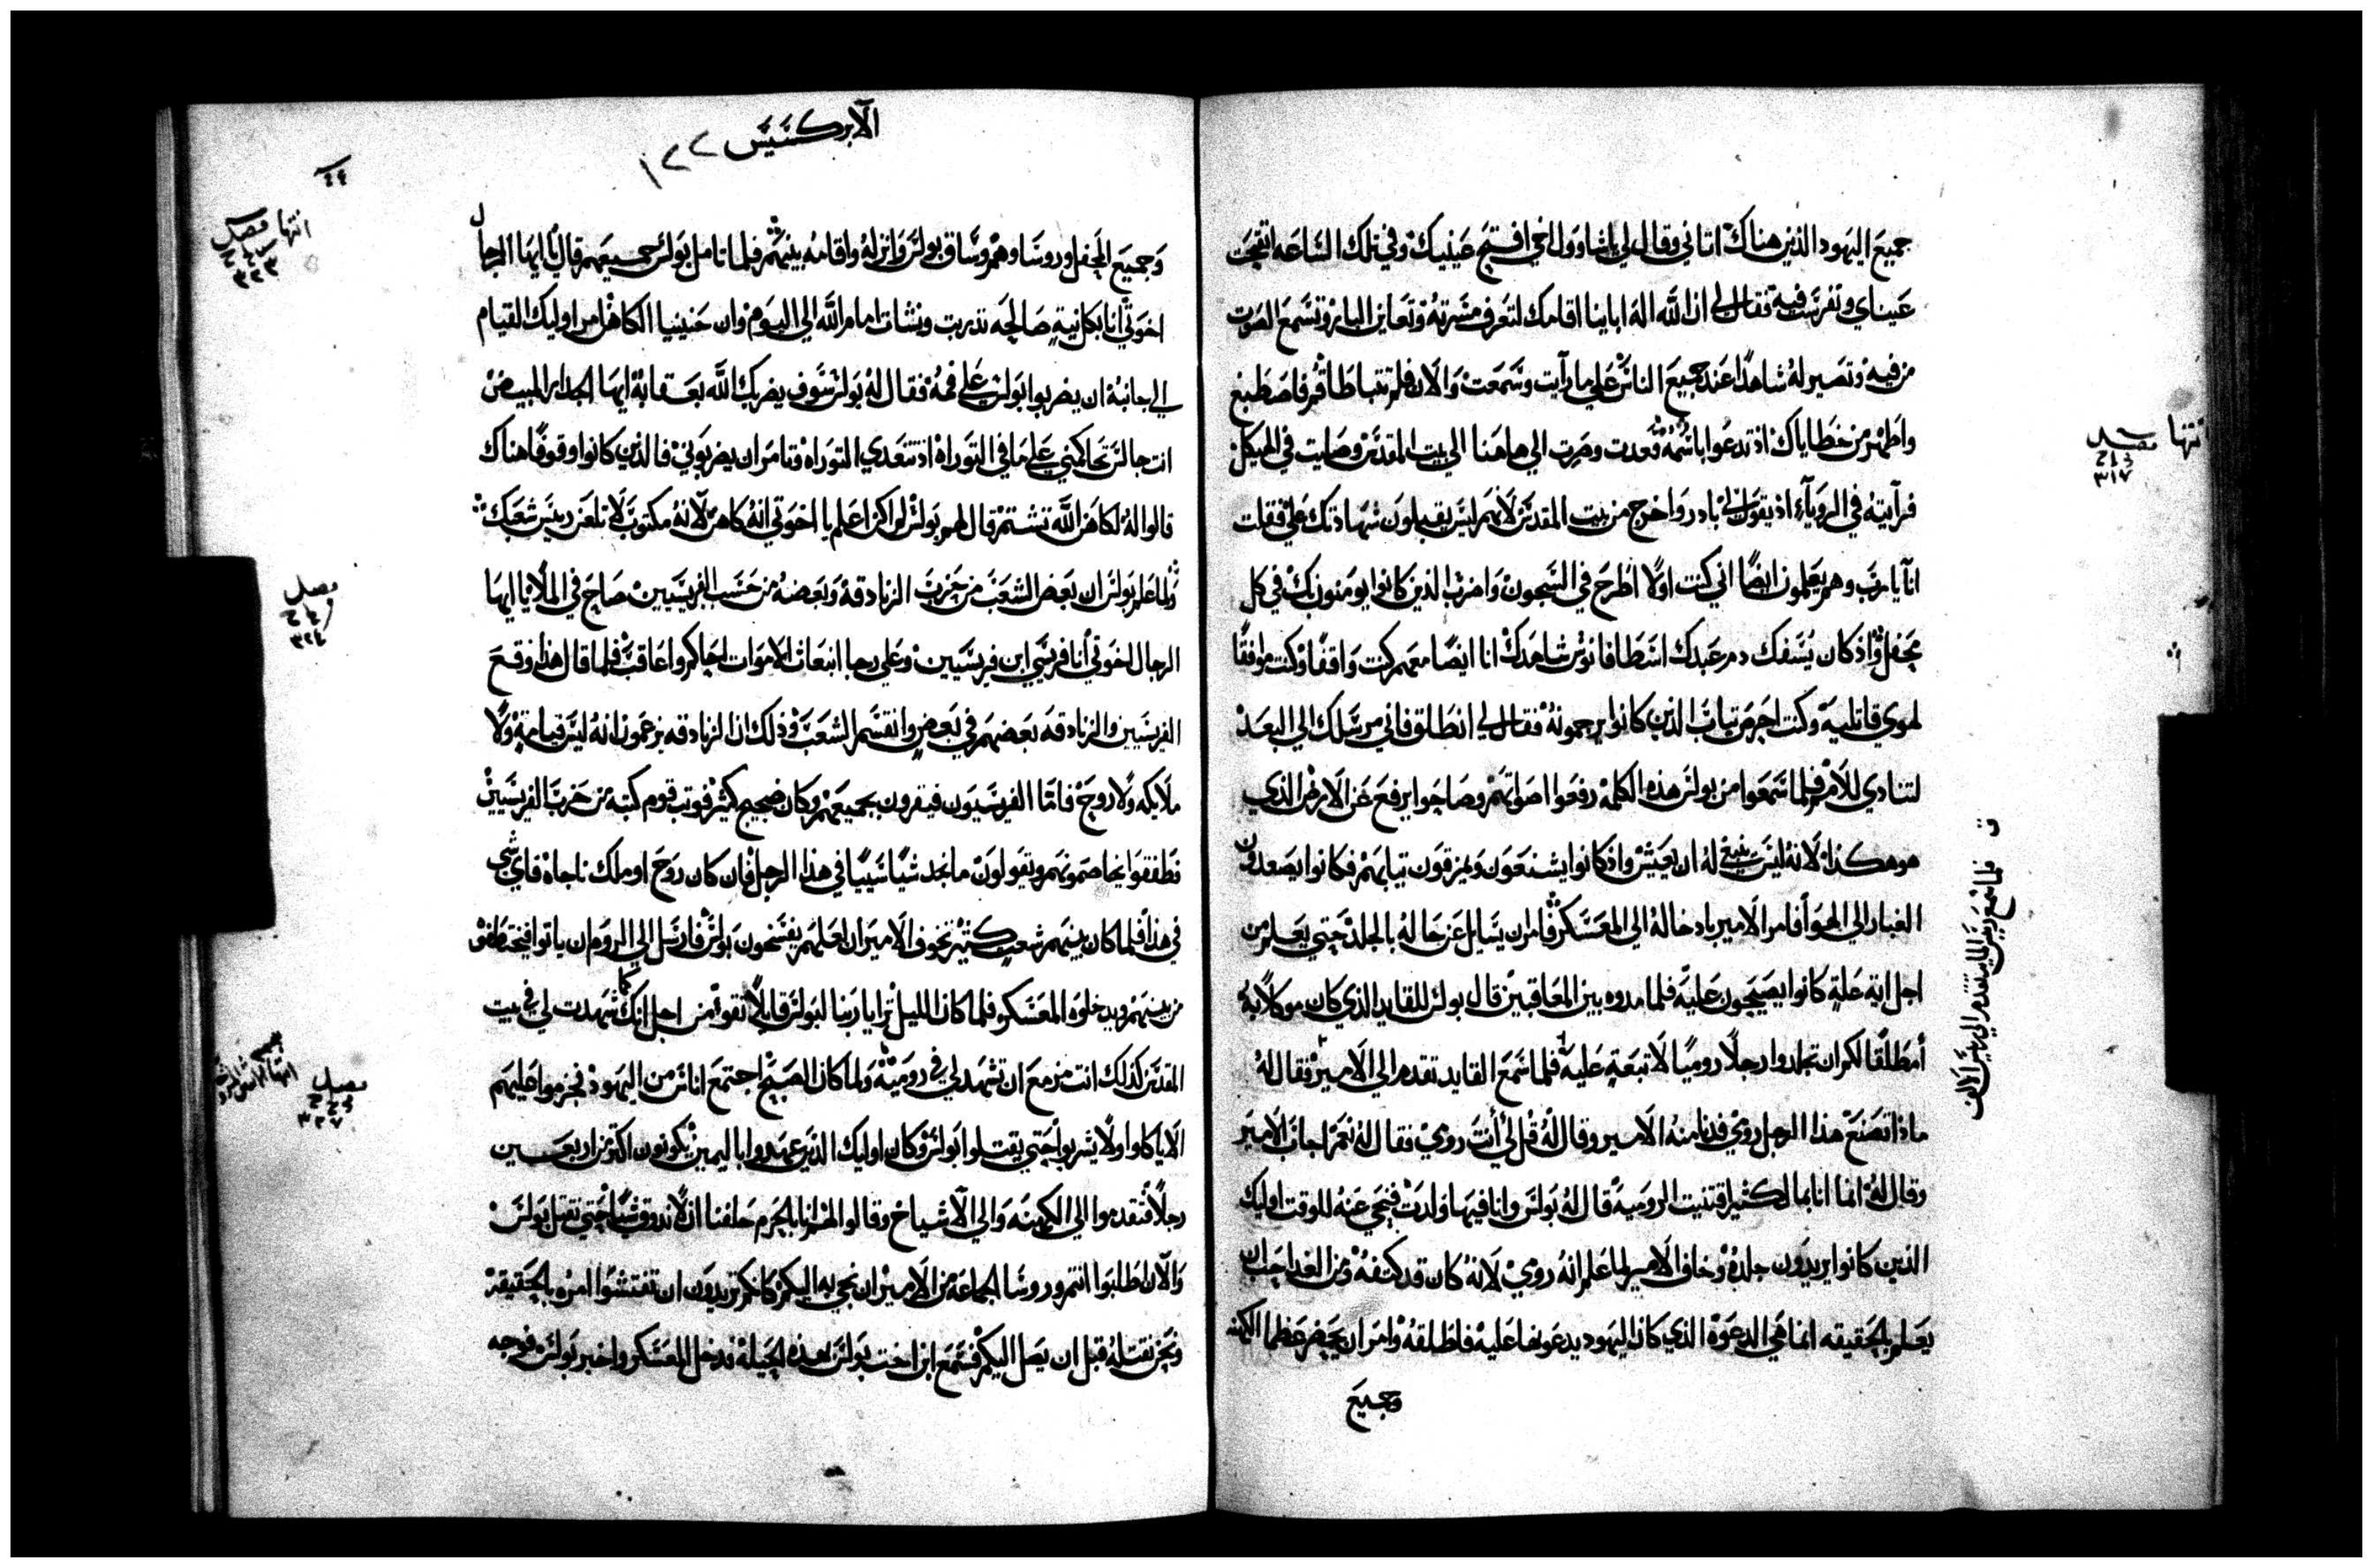 جميع اليهود الذين هناك اتاني وقال لي يا شاوول اخي افتح عينيك وفي تلك الساعه انفتحت
عيناي وتفرست فيه فقال لي ان الله اله ابايا اقامك لتعرف مسرته وتعاين البار وتسمع الصوت
من فيه وتصير له شاهدًا عند جميع الناس علي ما رآيت وسمعت والان فلم تتباطا قم فاصطبغ
واطهر من خطاياك اذ تدعوا باسمه فعدت وصرت الي هاهنا الي بيت المقدس وصليت في الهيكل
فرآيته في الروياء اذ يقول لي بادر واخرج من بيت المقدس لانهم ليس يقبلون شهادتك علي فقلت
انا يا رب وهم يعلمون ايضًا اني كنت اولًا اطرح في السجون واضرب الذين كانوا يومنون بك في كل
محفل واذ كان يسفك دم عبدك اسطافانوس شاهدك انا ايضًا معهم كنت واقفًا وكنت موافقًا
لهوي قاتليه وكنت احرس تياب الذين كانوا يرجمونه فقال لي انطلق فاني مرسلك الي البعد
لتنادي للامم فلما سمعوا من بولس هذه الكلمة رفعوا اصواتهم وصاحوا يرفع عن الارض الذي
هو هكذا لانه ليس ينبغي له ان يعيش واذ كانوا يشنعون ويمزقون تيابهم فكانوا يصعدون
الغبار الي الهوا أفامر الامير بادخاله الي المعسكر فامر ان يسايل عن حاله بالجلد حتي يعلم من
اجل اية علة كانوا يصيحون عليه فلما مدوه بين المعاقبين قال بولس للقايد الذي كان موكلًا به
أمطلقًا لكم ان تجلدوا رجلًا روميًا لا تبعة عليه فلما سمع القايد تقدم الي الامير فقال له
ماذا تصنع هذا الرجل رومي فدنا منه الامير وقال له قل لي أنت رومي فقال له نعم اجاب الامير
وقال له انما انا بمال كثير اقتنيت الرومية قال له بولس وانا فيها ولدت فنحي عنه للوقت اوليك
الذين كانوا يريدون جلده وخاف الامير لما علم انه رومي لانه كان قد كتفه ومن الغد احب ان
يعلم بالحقيقه انما هي الدعوه الذي كان اليهود يدعونها عليه فاطلقه وامر ان يحضر عظما الكهنه
وجميع
فصل
٣١٧
ق فلما سمع رييس الماية تقدم الي رييس الالف
الابركسيس ١٢٢
وجميع المحفل وروسا وهم وساق بولس وانزله واقامه بينهم فلما تامل بولس جميعهم قال يا ايها الرجال
اخوتي انا بكل نية صالحه تدبرت ونشات امام الله الي اليوم وان حننيا الكاهن امر اوليك القيام
الي جانبه ان يضربوا بولس علي فمه فقال له بولس سوف يضربك الله بعقابه ايها الجدار المبيض
انت جالس تحاكمني علي ما في التوراه اذ تتعدي التوراه وتامر ان يضربوني فالذين كانوا وقوفًا هناك
قالوا له لكاهن الله تشتم قال لهم بولس لم اكن اعلم يا اخوتي انه كاهن لآنه مكتوب لا تلعن رييس شعبك
ولما علم بولس ان بعض الشعب من حزب الزنادقه وبعضه من حسب الفريسيين صاح في الملا يا ايها
الرجال اخوتي أنا فريسي ابن فريسيين وعلي رجا انبعاث الاموات احاكم واعاقب فلما قال هذا وقع
الفريسيين والزنادقه بعضهم في بعض وانقسم الشعب وذلك ان الزنادقه يزعمون انه ليس قيامة ولا
ملايكه ولا روح فاما الفريسيون فيقرون بجميعهم وكان ضجيج كثير فوتب قوم كتبه من حزب الفريسيين
فطفقوا يخاصمونهم ويقولون ما نجد شيًا سيًا في هذا الرجل فان كان روح او ملك ناجاه فاي شي
في هذا فلما كان بينهم شعب كثير تخوف الامير ان لعلهم يفسخون بولس فارسل الي الروم ان ياتوا فيختطفوه
من بينهم ويدخلوه المعسكر فلما كان الليل ترايا ربنا لبولس قايلًا تقوا من اجل انك كما شهدت لي في بيت
المقدس كذلك انت مزمع ان تشهد لي في رومية ولما كان الصبح اجتمع اناس من اليهود فحرموا عليهم
الا ياكلوا ولا يشربوا حتي يقتلوا بولس وكان اوليك الذين عهدوا باليمين يكونون اكتر من اربعين
رجلًا فتقدموا الي الكهنه والي الآشياخ وقالوا لهم انا بالحرم حلفنا ان لا ندوق شيًا حتي نقتل بولس
والآن طلبوا انتم وروسا الجماعه من الامير ان نجي به اليكم كانكم تريدون ان تفتشوا امره بالحقيقة
ونحن نقتله قبل ان يصل اليكم فسمع ابن اخت بولس بهذه الحيلة فدخل المعسكر واخبر بولس فوجه
انتها فصل
٣٢٣
فصل
٣٢٤
فصل
٣٢٧